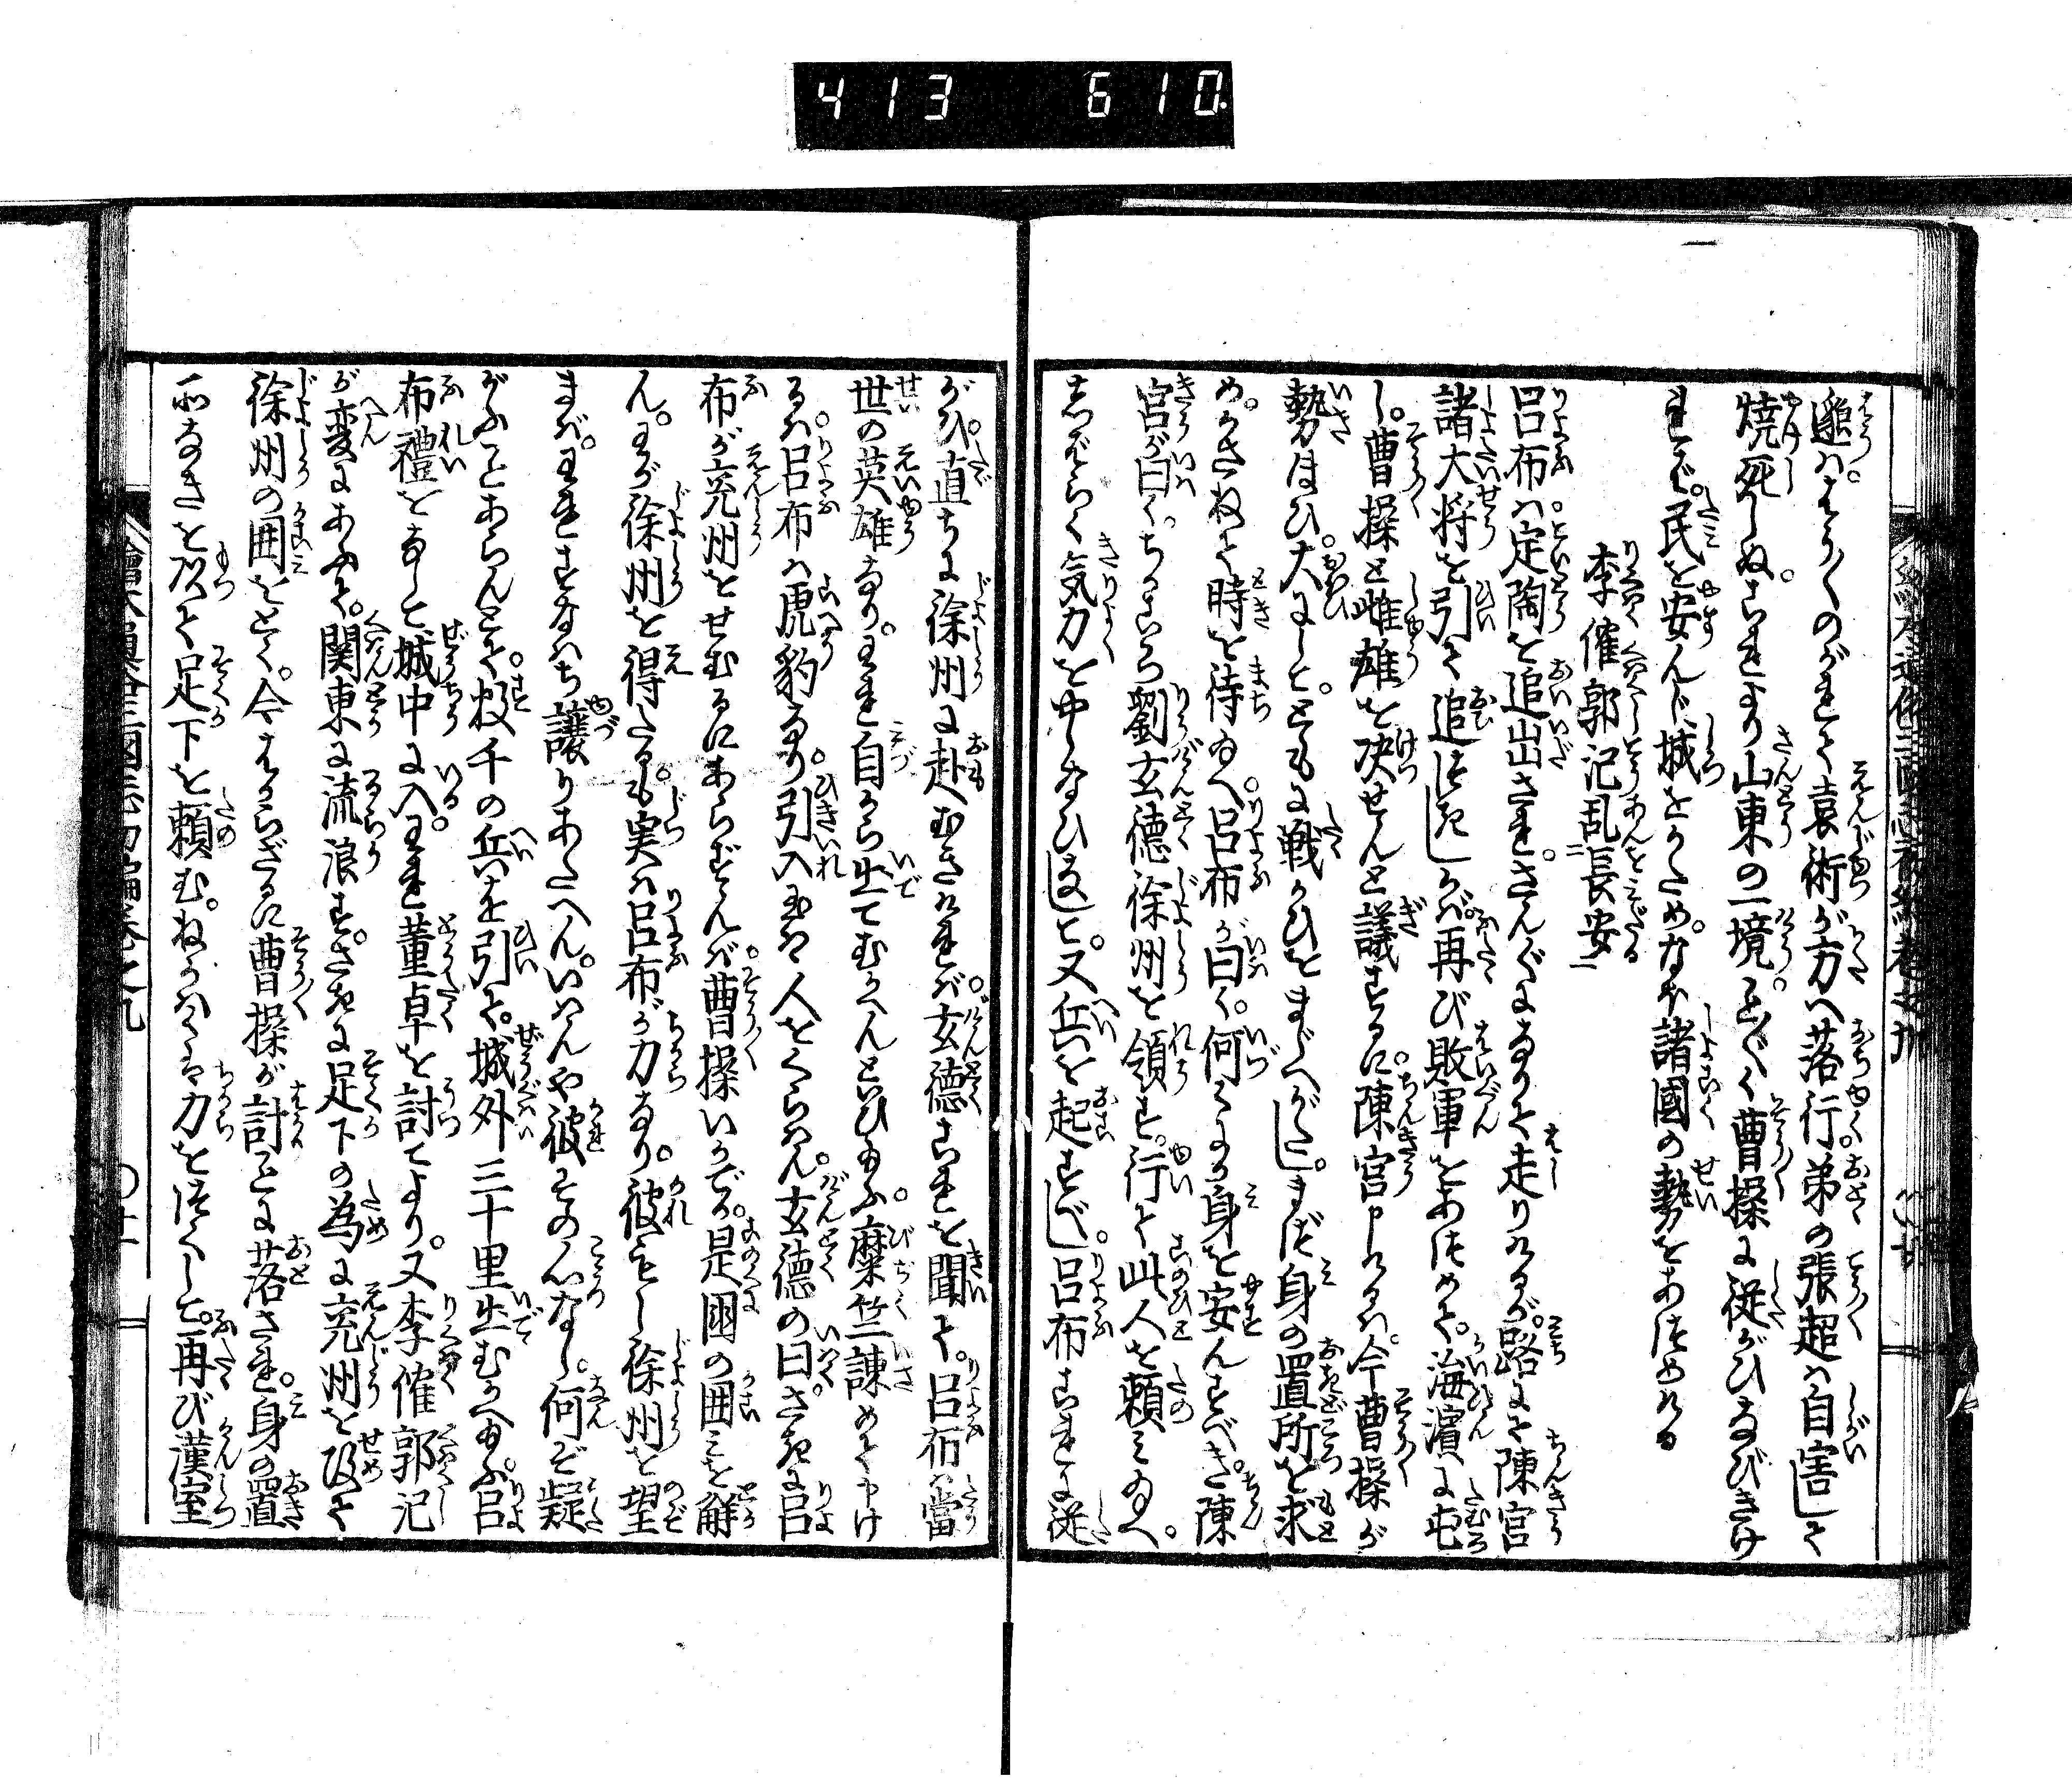 413 610
邈ハはう〳〵のがれて袁術が方へ落行弟の張超ハ自害して
焼死しぬ。これより山東の一境。こと〴〵く曹操に従がひなびきけ
れバ。民を安んじ城をかため。なほ諸國の勢をあつめける
李傕郭汜乱長安
呂布ハ定陶を追出され。さん〴〵になりて走りけるが。路にて陳宮
諸大将を引て追つきしかバ。再び敗軍をあつめて。海濱に屯
し。曹操と雌雄を决せんと議するに。陳宮申けるハ。今曹操が
勢ほひ。大にして。ともに戦かひをまじへがたし。まづ身の置所を求
め。かさねて時を待給へ。呂布が曰く。何くにか身を安んずべき。陳
宮が曰く。ちかごろ劉玄德徐州を領す。行て此人を頼み給へ。
しばらく気力をやしなひ得て。又兵を起すべし。呂布これに從
がひ。直ちに徐州に赴むきければ。玄德これを聞て。呂布ハ當
世の英雄なり。われ自から出てむかへんといひ給ふ。糜竺諫めて申け
るハ。呂布ハ虎豹なり。引入給はゞ人をくらはん。玄德の曰。さきに呂
布が兗州をせむるにあらずんバ。曹操いかでか。是國の囲みを觧
ん。わが徐州を得たるも。実ハ呂布が力なり。彼もし徐州を望
まバ。われすなはち譲りあたへん。いはんや彼その心なし。何ぞ疑
がふことあらんとて。数千の兵を引て。城外三十里出むかへ給ふ。呂
布禮をなして城中に入。われ董卓を討てより。又李傕郭汜
が変にあふて。関東に流浪す。さきに足下の為に兗州を攻て
徐州の囲をとく。今はからざるに曹操が計ことに落され。身の置
所なきを以て足下を頼む。ねがはくは力をつくして。再び漢室
繪本通俗三國志初編巻之九